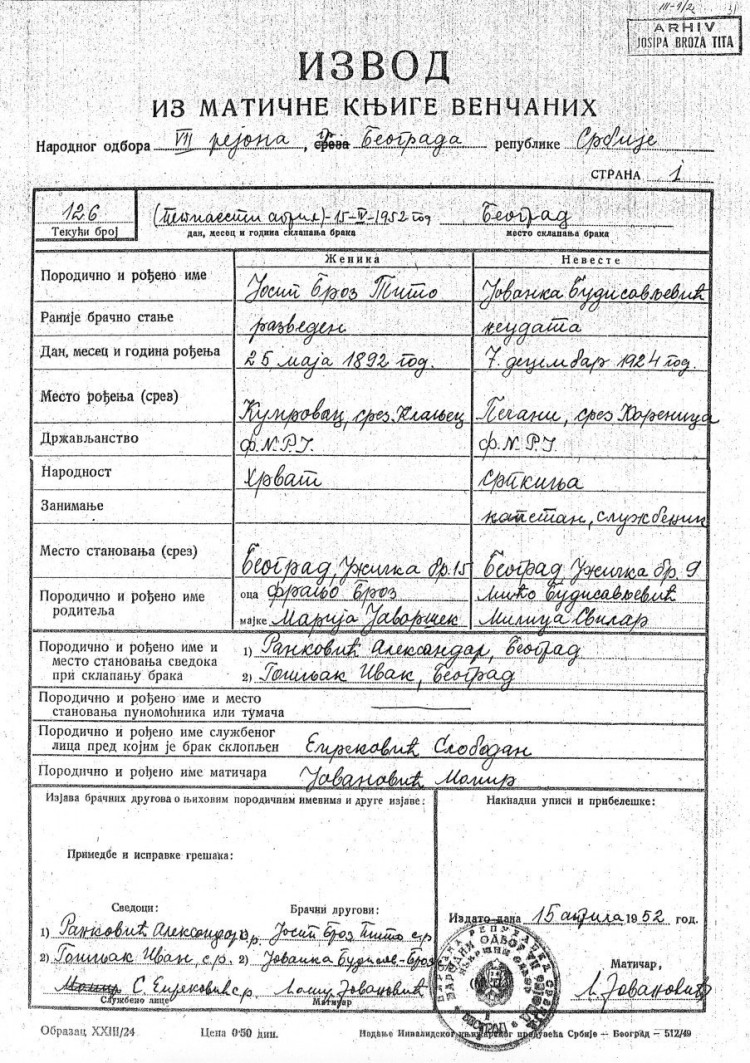 III-9/2
ARHIV
JOSIPA BROZA TITA
ИЗВОД
ИЗ МАТИЧНЕ КЊИГЕ ВЕНЧАНИХ
Народног одбора VII рејона, гр. среза Београда републике Србије
СТРАНА 1
126 (петнаести април)-15-IV-1952 год Београд
Текући број дан, месец и година склапања брака место склапања брака
Женика Невесте
Породично и рођено име Јосип Броз Тито Јованка Будисављевић
Раније брачно стање разведен неудата
Дан, месец и година рођења 25 маја 1892 год. 7. децембар 1924 год.
Место рођења (срез) Купровац, срез Клањец Пећани, срез Кореница
Држављанство Ф.Н.Р.Ј. Ф.Н.Р.Ј.
Народност Хрват српкиња
Занимање капетан, службеник
Место становања (срез) Београд, Ужичка бр. 15 Београд Ужичка бр. 9
Породично и рођено име родитеља оца Фрањо Броз Мићо Будисављевић
мајке Марија Јаворшек Милица Свилар
Породично и рођено име и место становања сведока при склапању брака 1) Ранковић Александар, Београд
2) Гошњак Иван, Београд
Породично и рођено име и место становања пуномоћника или тумача
Породично и рођено име службеног лица пред којим је брак склопљен Слободан
Породично и рођено име матичара Јовановић Момир
Изјава брачних другова о њиховим породичним именима и друге изјаве: Накнадни уписи и прибелешке:
Примедбе и исправке грешака:
Сведоци: Брачни другови:
Издато дана 15 априла 1952 год.
1) Ранковић Александар с.р. 1) Јосип Броз Тито с.р.
2) Гошњак Иван, с.р. 2) Јованка Будисав-Броз
Матичар,
С. с.р. Момир Јовановић М. Јовановић
Службено лице Матичар
Образац XXIII/24 Цена 0·50 дин. Издање Инвалидског књижарског предузећа Србије — Београд — 512/49